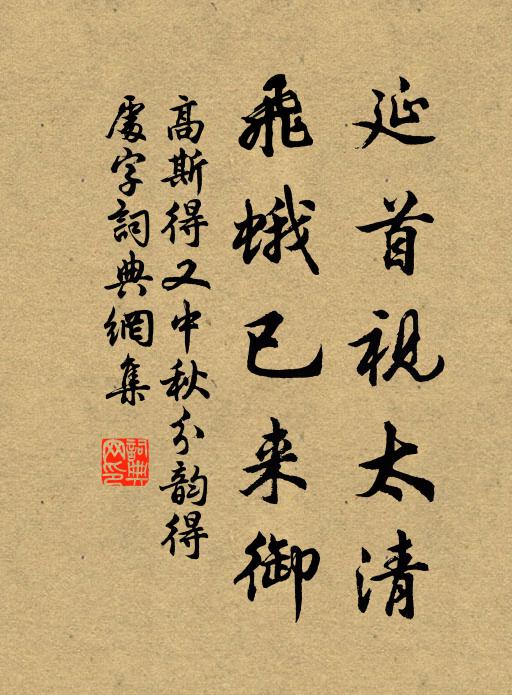 延首視太清
飛蛾已来御
高斯得又中秋分韵得
處字詞典網集
詞典网印